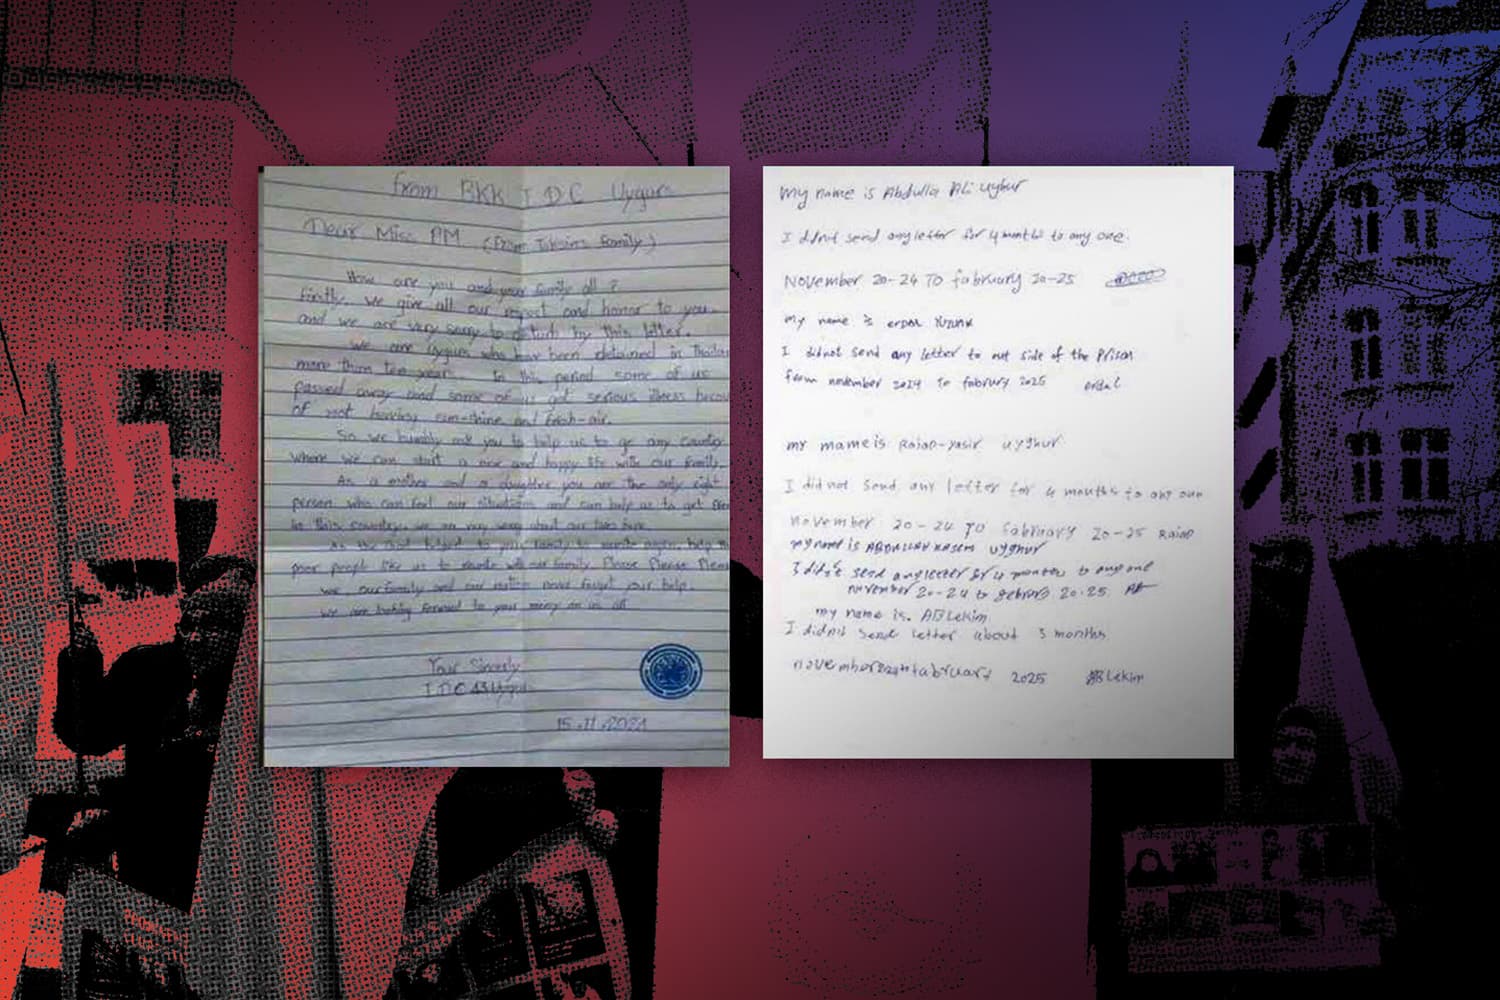 from BKK IDC Uygurs
Dear Miss PM (From Taksins family)
How are you and your family all ?
firstly, we give all our respect and honor to you.
and we are very sorry to disturb by this letter.
We are Uygurs who have been detained in
more than ten years. In this period some of us
passed away and some of us got serious illness
of not having sun-shine and fresh-air.
So we humbly ask you to help us to go any country
where we can start a new and happy life with our family.
As a mother and a daughter you are the only right
person who can feel our situations and can help us to get
in this country, we are very worry about our
poor people like us to reunite with our family. Please Please
we our family and our nation never forget your help.
we are looking forward to your mercy on us all
Your Sincerly
IDC 43 Uygur
My name is Abdulla Ali uyghur
I didnt send any letter for 4 months to any one.
November 20-24 TO fabruary 20-25
my name is
I didnot send any letter to out side of the Prison
from november 2024 to fabrury 2025 erdal
my mame is uyghur
I did not send any letter for 4 mouths to any one
november 20-24 TO fabruary 20-25
my name is ABDULLAH KASEM uyghur
I didn't send any letter for 4 months to any one
november 20-24 to 20-25
my name is. ABLekim
I didnit send letter about 3 months
2025 ABLekim